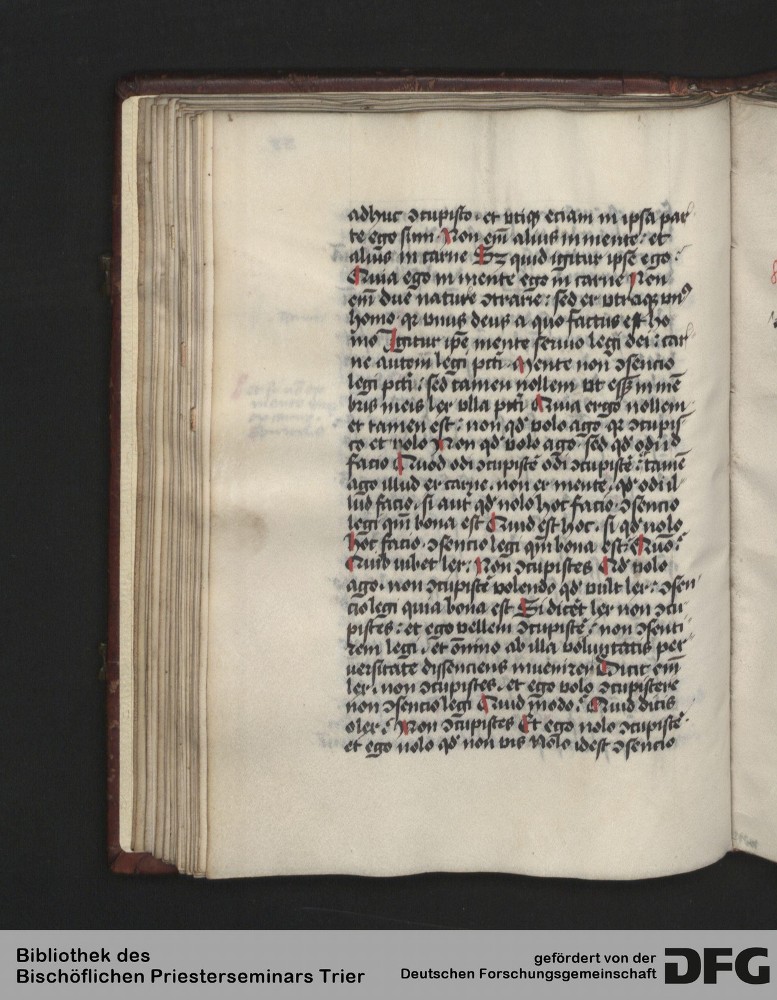 adhuc ɔcupisco · et vtiqꝫ eciam in ipsa par
te ego sum · Non em̄ alius in mente : et
alius in carne Sꝫ quid igitur ipse ego :
Quia ego in mente ego in carne Non
em̄ due nature ɔtrarie : sed ex vtraqꝫ vnꝰ
homo · qꝛ vnus deus a quo factus est ho
mo Igitur ip̄e mente seruio legi dei : car
ne autem legi pcti · Mente non ɔsencio
legi pcti : sed tamen nollem vt ess̄ in mē
bris meis lex vlla pcti Quia ergo nollem
et tamen est : non qd̓ volo ago · qꝛ ɔcupis
co et nolo Non qd̓ volo ago · sed qd̓ odi id
facio Quod odi ɔcupistē odi ɔcupistē : tamē
ago illud ex carne · non ex mente · qd̓ odi il
lud facio · si aut̄ qd̓ nolo hoc facio · ɔsencio
legi qm̄ bona est Quid est hoc · si qd̓ nolo
hoc facio · ɔsencio legi qm̄ bona est · Quō :
Quid iubet lex : Non ɔcupistes Qd̓ nolo
ago · non ɔcupistē volendo qd̓ vult lex : ɔsen
cio legi quia bona est Si dicēt lex non ɔcu
pistes : et ego vellem ɔcupistē : non ɔsenti
rem legi · et om̄ino ab illa voluntatis per
uersitate dissenciens inuenirer Dicit em̄
lex · non ɔcupistes · et ego volo ɔcupistere
non ɔsencio legi Quid modo : Quid dicis
o lex : Non ɔcupistes Et ego nolo ɔcupistē ·
et ego nolo qd̓ non vis Nolo idest ɔsencio
Bibliothek des
Bischöflichen Priesterseminars Trier
gefördert von der
Deutschen Forschungsgemeinschaft
DFG